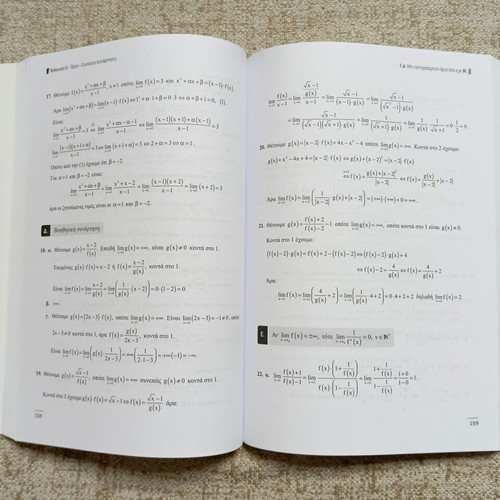 Κεφάλαιο 1ο - Όριο - Συνέχεια συνάρτησης
17. Θέτουμε f(x)=(x²+αx+β)/(x-1), x≠1 οπότε lim_{x→1} f(x)=3 και x²+αx+β=(x-1)·f(x).
Άρα lim_{x→1}(x²+αx+β)=lim_{x→1}(x-1)·f(x)⇔1²+α·1+β=0·3⇔α+β+1=0, (1).
Είναι:
lim_{x→1} (x²+αx+β)/(x-1)=3 ⇔ lim_{x→1} (x²+αx-α-1)/(x-1)=3 ⇔ lim_{x→1} ((x-1)(x+1)+α(x-1))/(x-1)=3
lim_{x→1} ((x-1)(x+1+α))/(x-1)=3⇔lim_{x→1}(x+1+α)=3⇔2+α=3⇔α=1.
Οπότε από την (1) έχουμε ότι β=-2.
Για α=1 και β=-2 είναι:
lim_{x→1} (x²+αx+β)/(x-1)=lim_{x→1} (x²+x-2)/(x-1)=lim_{x→1} ((x-1)(x+2))/(x-1)=lim_{x→1}(x+2)=3
άρα οι ζητούμενες τιμές είναι οι α=1 και β=-2.
Δ. Βοηθητική συνάρτηση
18. α. Θέτουμε g(x)=(x-2)/f(x). Επειδή lim_{x→1} g(x)=+∞, είναι g(x)≠0 κοντά στο 1.
Επομένως g(x)·f(x)=x-2 ή f(x)=(x-2)/g(x), κοντά στο 1.
Είναι lim_{x→1} f(x)=lim_{x→1} (x-2)/g(x)=lim_{x→1} (1/g(x)·(x-2))=0·(1-2)=0.
β. +∞.
γ. Θέτουμε g(x)=(2x-3)·f(x), οπότε lim_{x→1} g(x)=+∞. Είναι lim_{x→1}(2x-3)=-1≠0, οπότε
2x-3≠0 κοντά στο 1, άρα f(x)=g(x)/(2x-3).
Είναι lim_{x→1} f(x)=lim_{x→1} (g(x)·1/(2x-3))=+∞·(1/(2·1-3))=+∞·(-1)=-∞.
19. Θέτουμε g(x)=√(x-1)/f(x), οπότε lim_{x→1} g(x)=+∞ συνεπώς g(x)≠0 κοντά στο 1.
Κοντά στο 1 έχουμε g(x)·f(x)=√x-1⇔f(x)=(√x-1)/g(x) άρα:
258
1.6 Μη πεπερασμένο όριο στο x₀∈ℝ
lim_{x→1} f(x)/(x-1)=lim_{x→1} ((√x-1)/g(x))/(x-1)=lim_{x→1} (√x-1)/((x-1)·g(x))=lim_{x→1} (√x-1)/((√x²-1)·g(x))=
=lim_{x→1} (√x-1)/((√x-1)(√x+1)·g(x))=lim_{x→1} 1/((√x+1)·g(x))=lim_{x→1} (1/g(x)·1/(√x+1))=0·1/2=0.
20. Θέτουμε g(x)=|x-2|·f(x)+4x-x²-4 οπότε lim_{x→2} g(x)=+∞. Κοντά στο 2 έχουμε:
g(x)+x²-4x+4=|x-2|·f(x)⇔g(x)+(x-2)²=|x-2|·f(x)
⇔f(x)=(g(x)+|x-2|²)/|x-2|⇔f(x)=g(x)/|x-2|+|x-2|
Άρα lim_{x→2} f(x)=lim_{x→2} (1/|x-2|·g(x)+|x-2|)=(+∞)·(+∞)+0=+∞.
21. Θέτουμε g(x)=(f(x)+2)/(f(x)-2) οπότε lim_{x→1} g(x)=+∞, οπότε κοντά στο 1 είναι g(x)≠0.
Κοντά στο 1 έχουμε:
(f(x)-2)·g(x)=f(x)+2⇔(f(x)-2)·g(x)=f(x)-2+4⇔(f(x)-2)(g(x)-1)=4
Άρα:
Ε. Αν lim_{x→x₀} f(x)=±∞, τότε lim_{x→x₀} 1/fᵛ(x)=0, ν∈ℕ*
22. α. lim_{x→1} (f(x)+1)/(f(x)-1)=lim_{x→1} (f(x)·(1+1/f(x)))/(f(x)·(1-1/f(x)))=lim_{x→1} (1+1/f(x))/(1-1/f(x))=(1+0)/(1-0)=1.
259